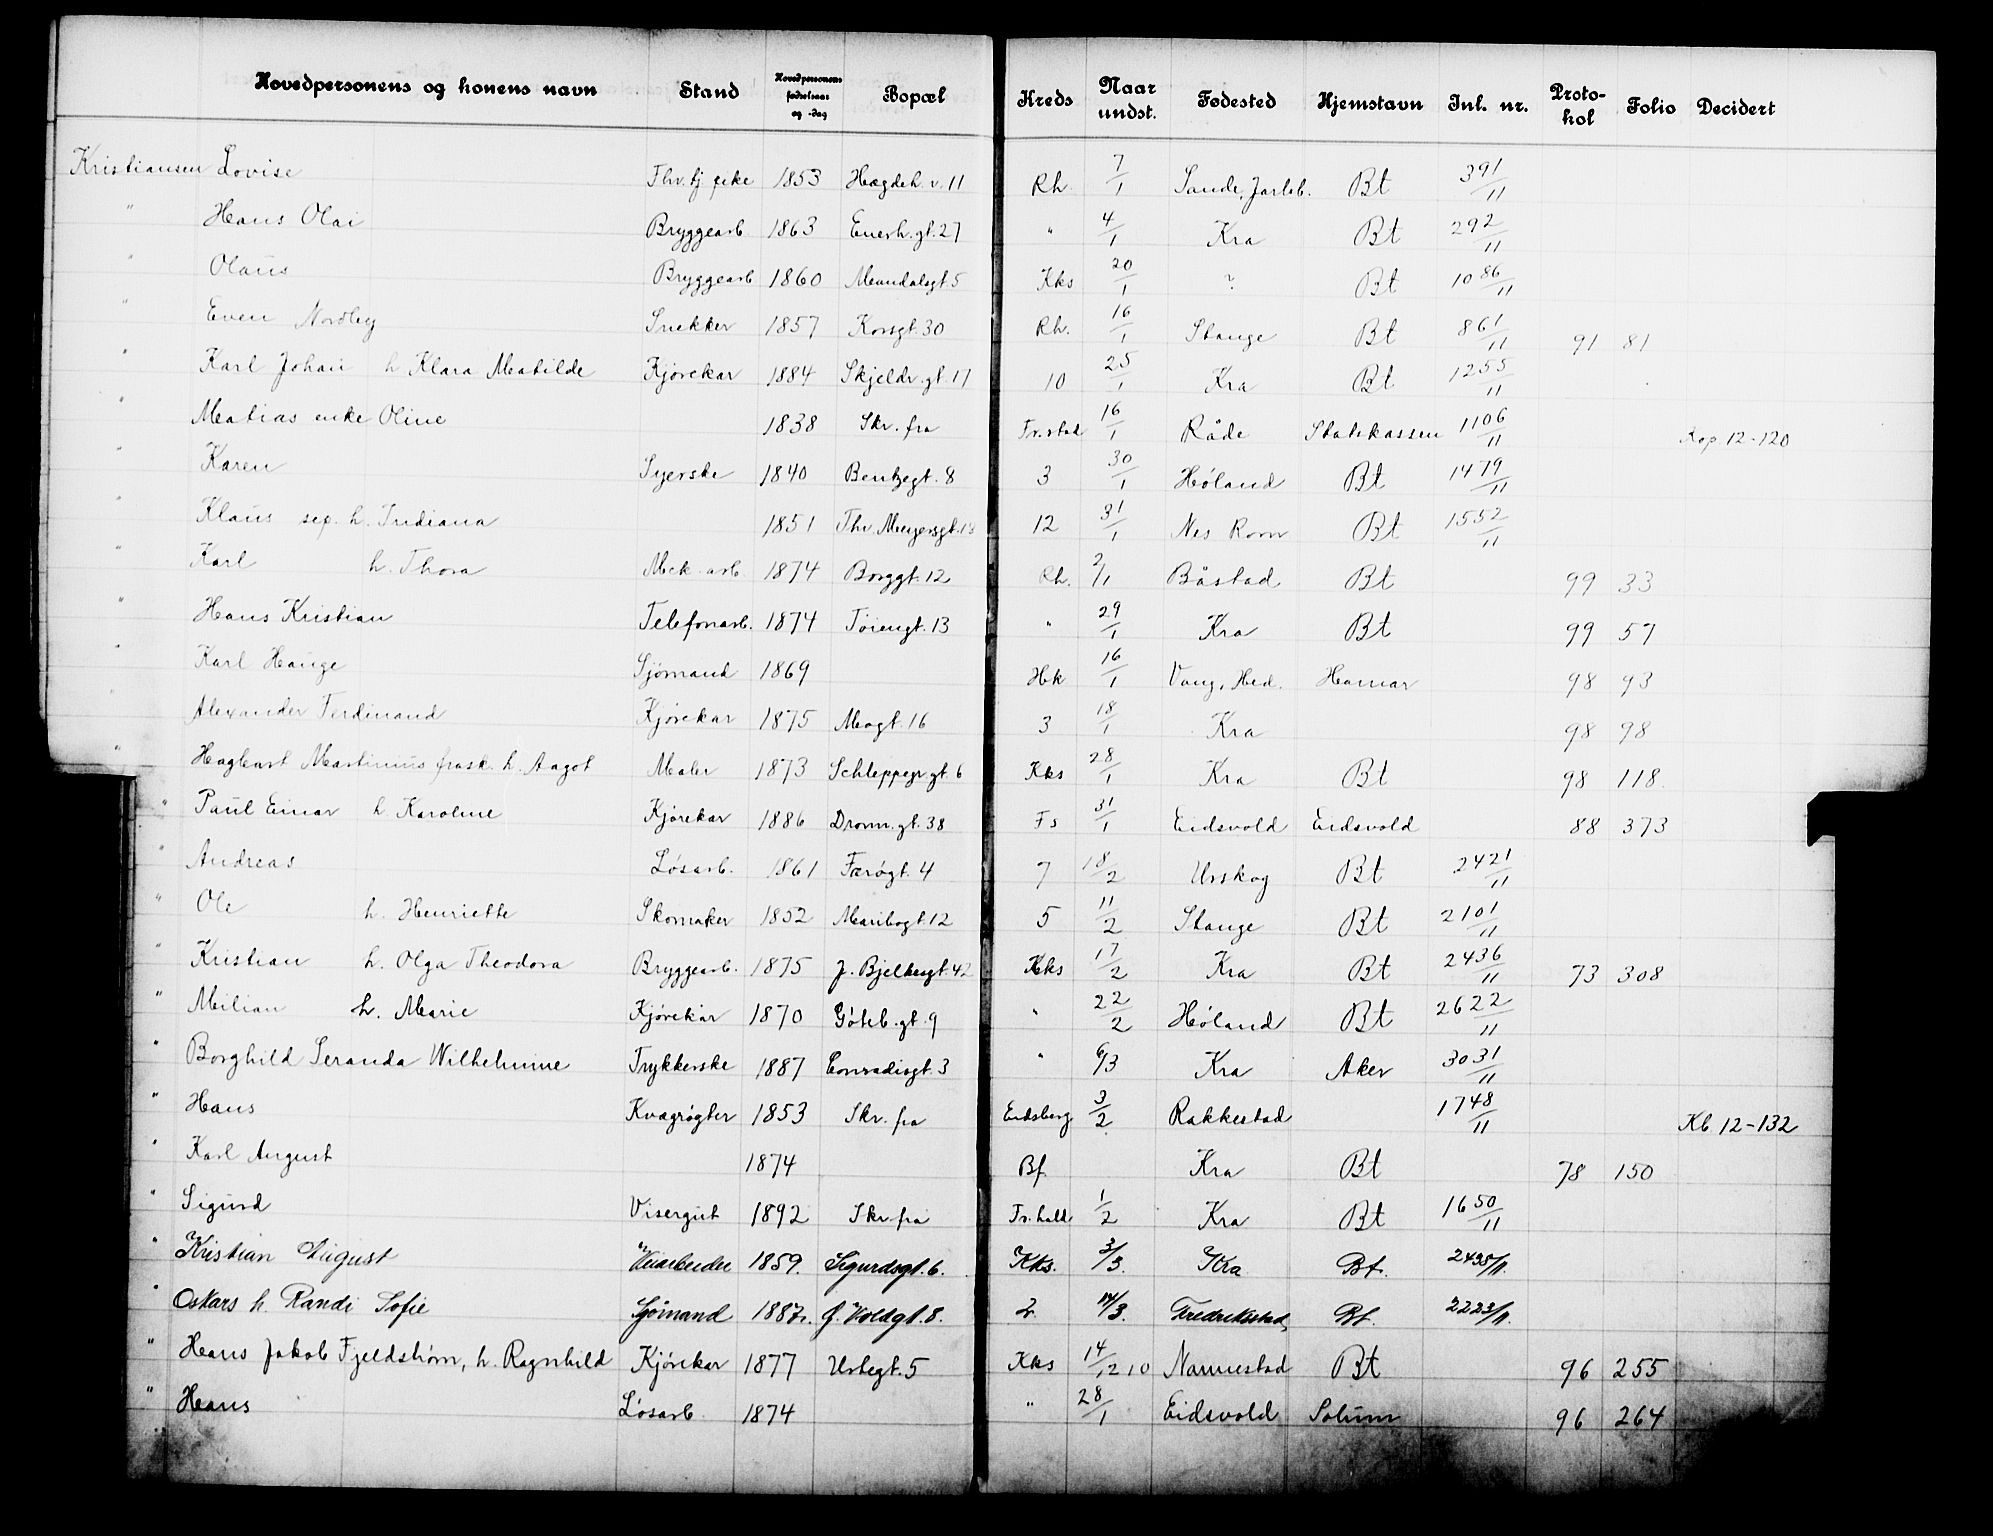 Hovedpersonens og konens navn Stand Hovedpersonens fødselsaar og -dag Bopæl Kreds Naar undst. Fødested Hjemstavn Inl. nr. Proto-kol Folio Decidert
Kristiansen Lovise Fhv. tj pike 1853 Hægdeh. v. 11 Rh. 7/1 Sande, Jarlsb. Bt 391/11
" Hans Olai Bryggearb 1863 Enerh. gt. 27 " 4/1 Kra Bt 292/11
" Olaus Bryggearb 1860 Mandalsgt 5 Kks 20/1 ? Bt 1086/11
" Even Nordby Snekker 1857 Korsgt. 30 Rh. 16/1 Stange Bt 861/11 91 81
" Karl Johan h Klara Matilde Kjørekar 1884 Skjeldr. gt. 17 10 25/1 Kra Bt 1255/11
" Matias enke Oline 1838 Skr. fra Fr. stad 16/1 Råde Statskassen 1106/11 Kop 12-120
" Karen Syerske 1840 Bentzegt. 8 3 30/1 Høland Bt 1479/11
" Klaus sep. h. Indiana 1851 Thv. Meyersgt. 12 31/1 Nes Rom Bt 1552/11
" Karl h. Thora Mek. arb. 1874 Borggt. 12 Rh. 2/1 Båstad Bt 99 33
" Hans Kristian Telefonarb. 1874 Tøiengt. 13 " 29/1 Kra Bt 99 57
" Karl Hauge Sjømand 1869 Hk 16/1 Vang, Hed. Hamar 98 93
Alexander Ferdinand Kjørekar 1875 Mogt. 16 3 18/1 Kra 98 98
" Hagbart Martinius frask. h. Aagot Maler 1873 Schleppegr. gt. 6 Kks 28/1 Kra Bt 98 118
" Paul Einar h Karoline Kjørekar 1886 Dronn. gt. 38 Fs 31/1 Eidsvold Eidsvold 88 373
" Andreas Løsarb. 1861 Færøgt. 4 7 18/2 Urskog Bt 2421/11
" Ole h. Henriette Skomaker 1852 Maribogt. 12 5 11/2 Stange Bt 2101/11
" Kristian h. Olga Theodora Bryggearb. 1875 J. Bjelkesgt. 42 Kks 17/2 Kra Bt 2436/11 73 308
" Milian h. Marie Kjørekar 1870 Gøteb. gt. 9 " 22/2 Høland Bt 2622/11
" Borghild Seranda Wilhelmine Trykkerske 1887 Conradisgt. 3 " 6/3 Kra Aker 3031/11
" Hans Kvægrøgter 1853 Skr. fra Eidsberg 3/2 Rakkestad 1748/11 Kb 12-132
" Karl August 1874 Bf Kra Bt 78 150
" Sigurd Visergut 1892 Skr. fra Fr. hald 1/2 Kra Bt 1650/11
" Kristian August Veiarbeider 1859. Sigurdsgt. 6. Kks. 3/3. Kra Bt. 2435/11.
" Oskars h. Randi Sofie Sjømand 1887. f. Voldgt. 8. 2. 14/3. Fredriksstad, Bt. 2223/11.
" Hans Jakob Fjeldstrøm, h. Ragnhild Kjørekar 1877 Urtegt. 5 Kks 14/12 10 Nannestad Bt 96 255
" Hans Løsarb. 1874 " 28/1 Eidsvold Solum 96 264